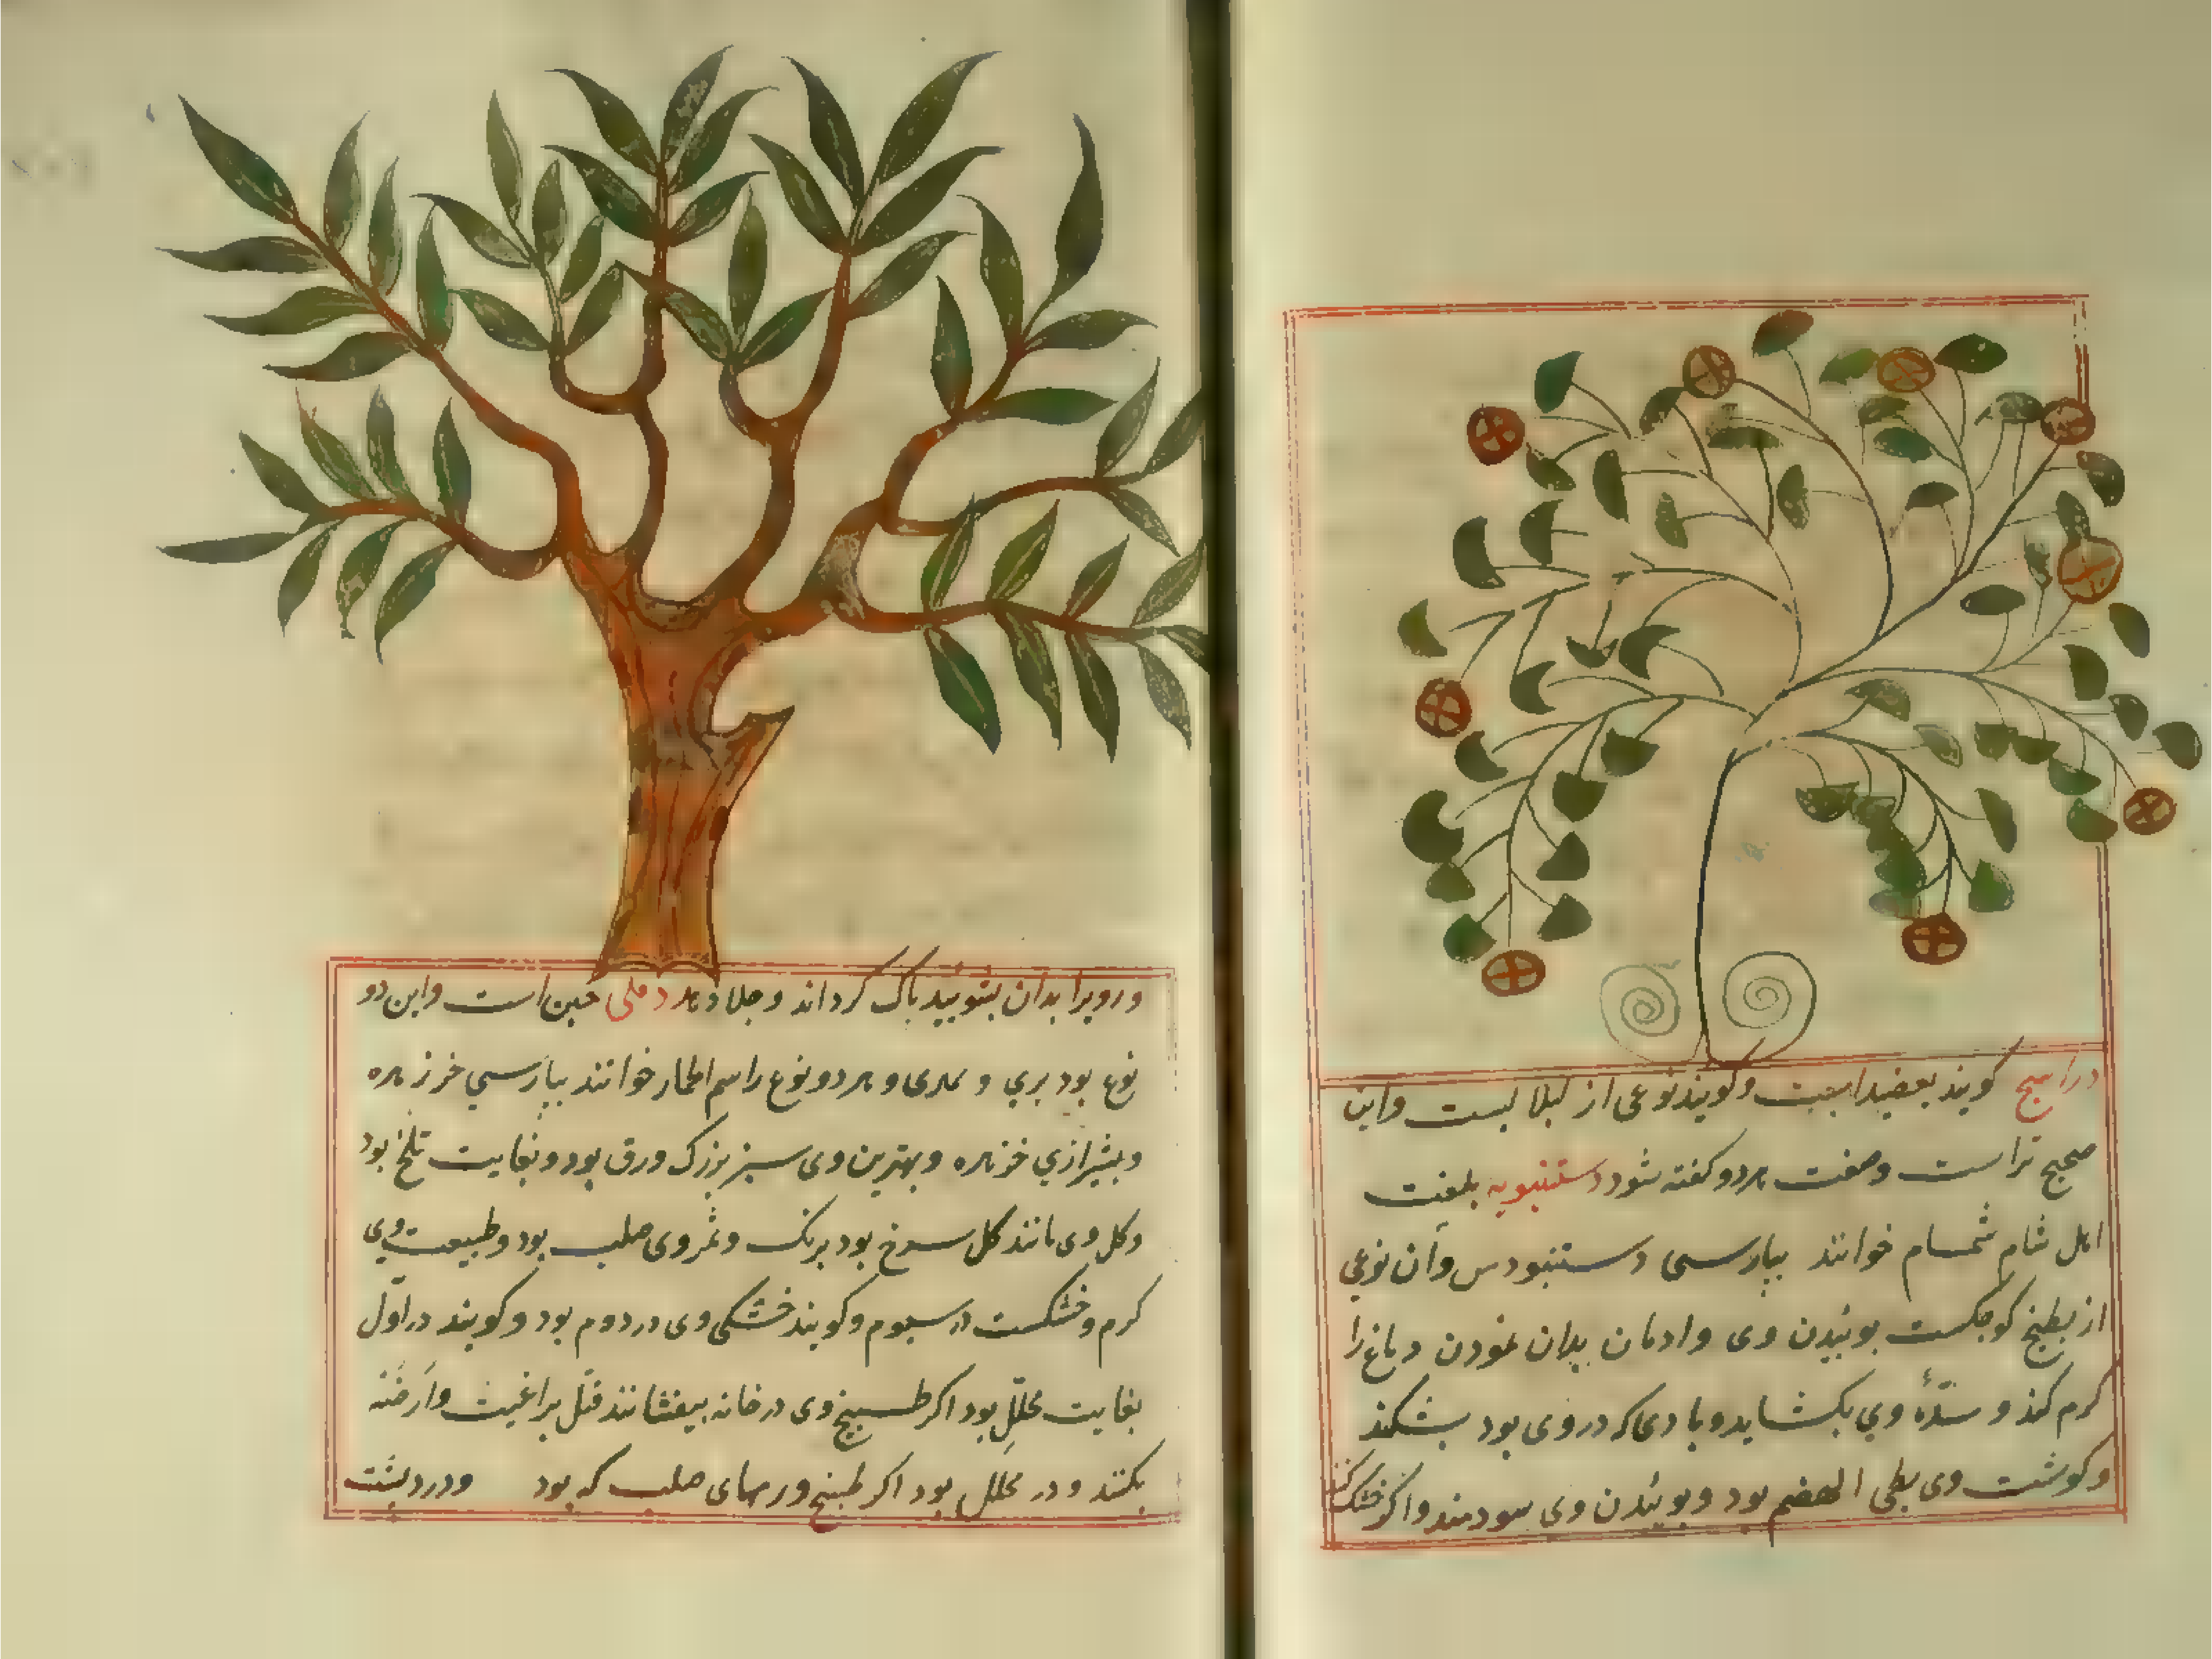 دراسج کویند بعضیدا سعت و کویند نوعی از لبلا لیست واین
صحیح تراست وصفت هردو کفته شود دستنبویه بلغت
اهل شام شمام خوانند بپارسی دستنبود س وآن نوعی
از بطیخ کوجکست بوئیدن وی وادمان بدان نمودن دماغ را
کرم کند و سدّهٔ وی بکشاید و بادی که در وی بود بشکند
وکوشت وی بطی الهضم بود وبوئیدن وی سودمند واکر خشک کنند
ورویرا بدان بشویند باک کرداند وجلا دهد دفلی حبن است واین دو
نوع بود بری و نهری و هردو نوع را سم الحمار خوانند بپارسی خرزهره
وبشیرازی خرزهره وبهترین وی سبز بزرک ورق بود وبغایت تلخ بود
وکل وی مانند کل سرخ بود برنک وثمر وی صلب بود وطبیعت وی
کرم وخشکست در سیوم وکویند خشکی وی در دوم بود وکویند در اوّل
بغایت محلّل بود اکر طبیخ وی در خانه بیفشانند قتل براغیث وارضه
بکنند و در محلل بود اکر طبیخ ورمهای صلب که بود ودرد پشت